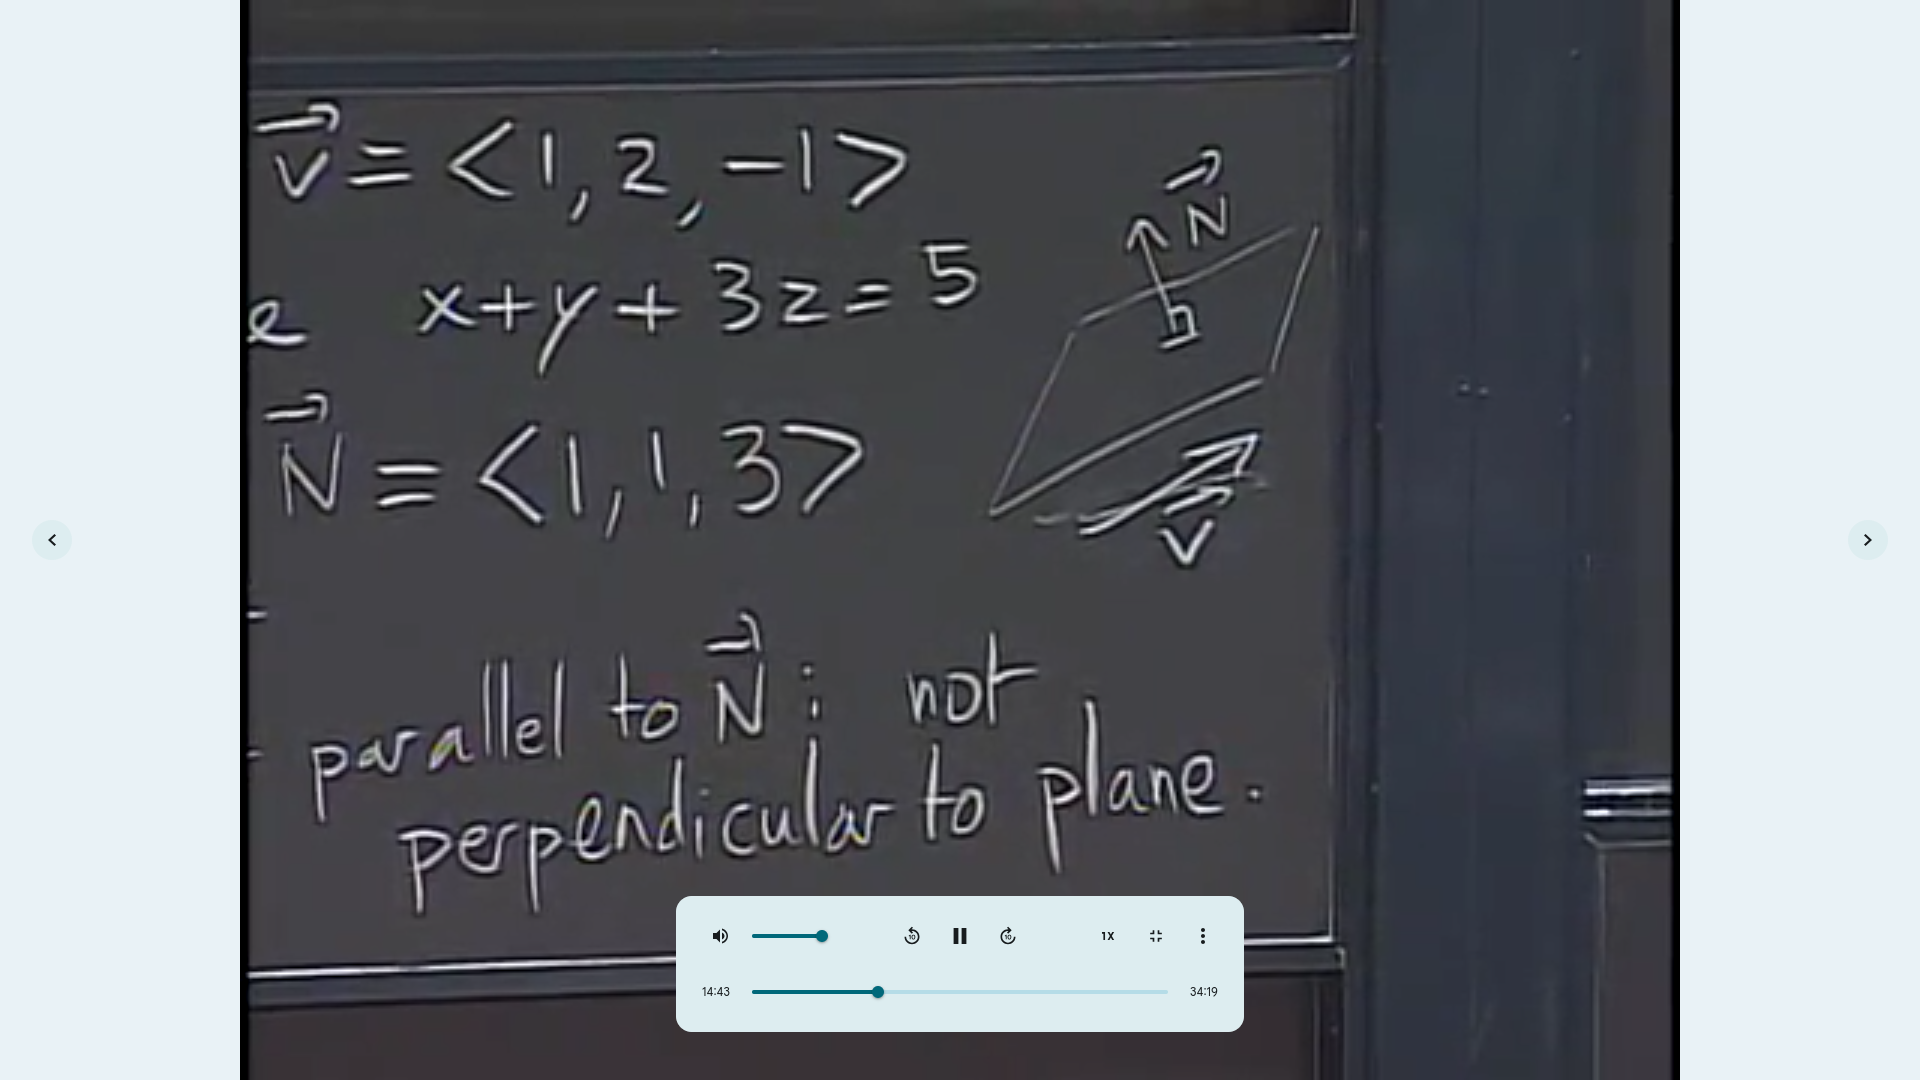 v⃗ = <1, 2, -1>
e x+y+3z=5
N⃗ = <1, 1, 3>
N⃗
v⃗
parallel to N⃗ ; not
perpendicular to plane.
10
10
1X
14:43
34:19